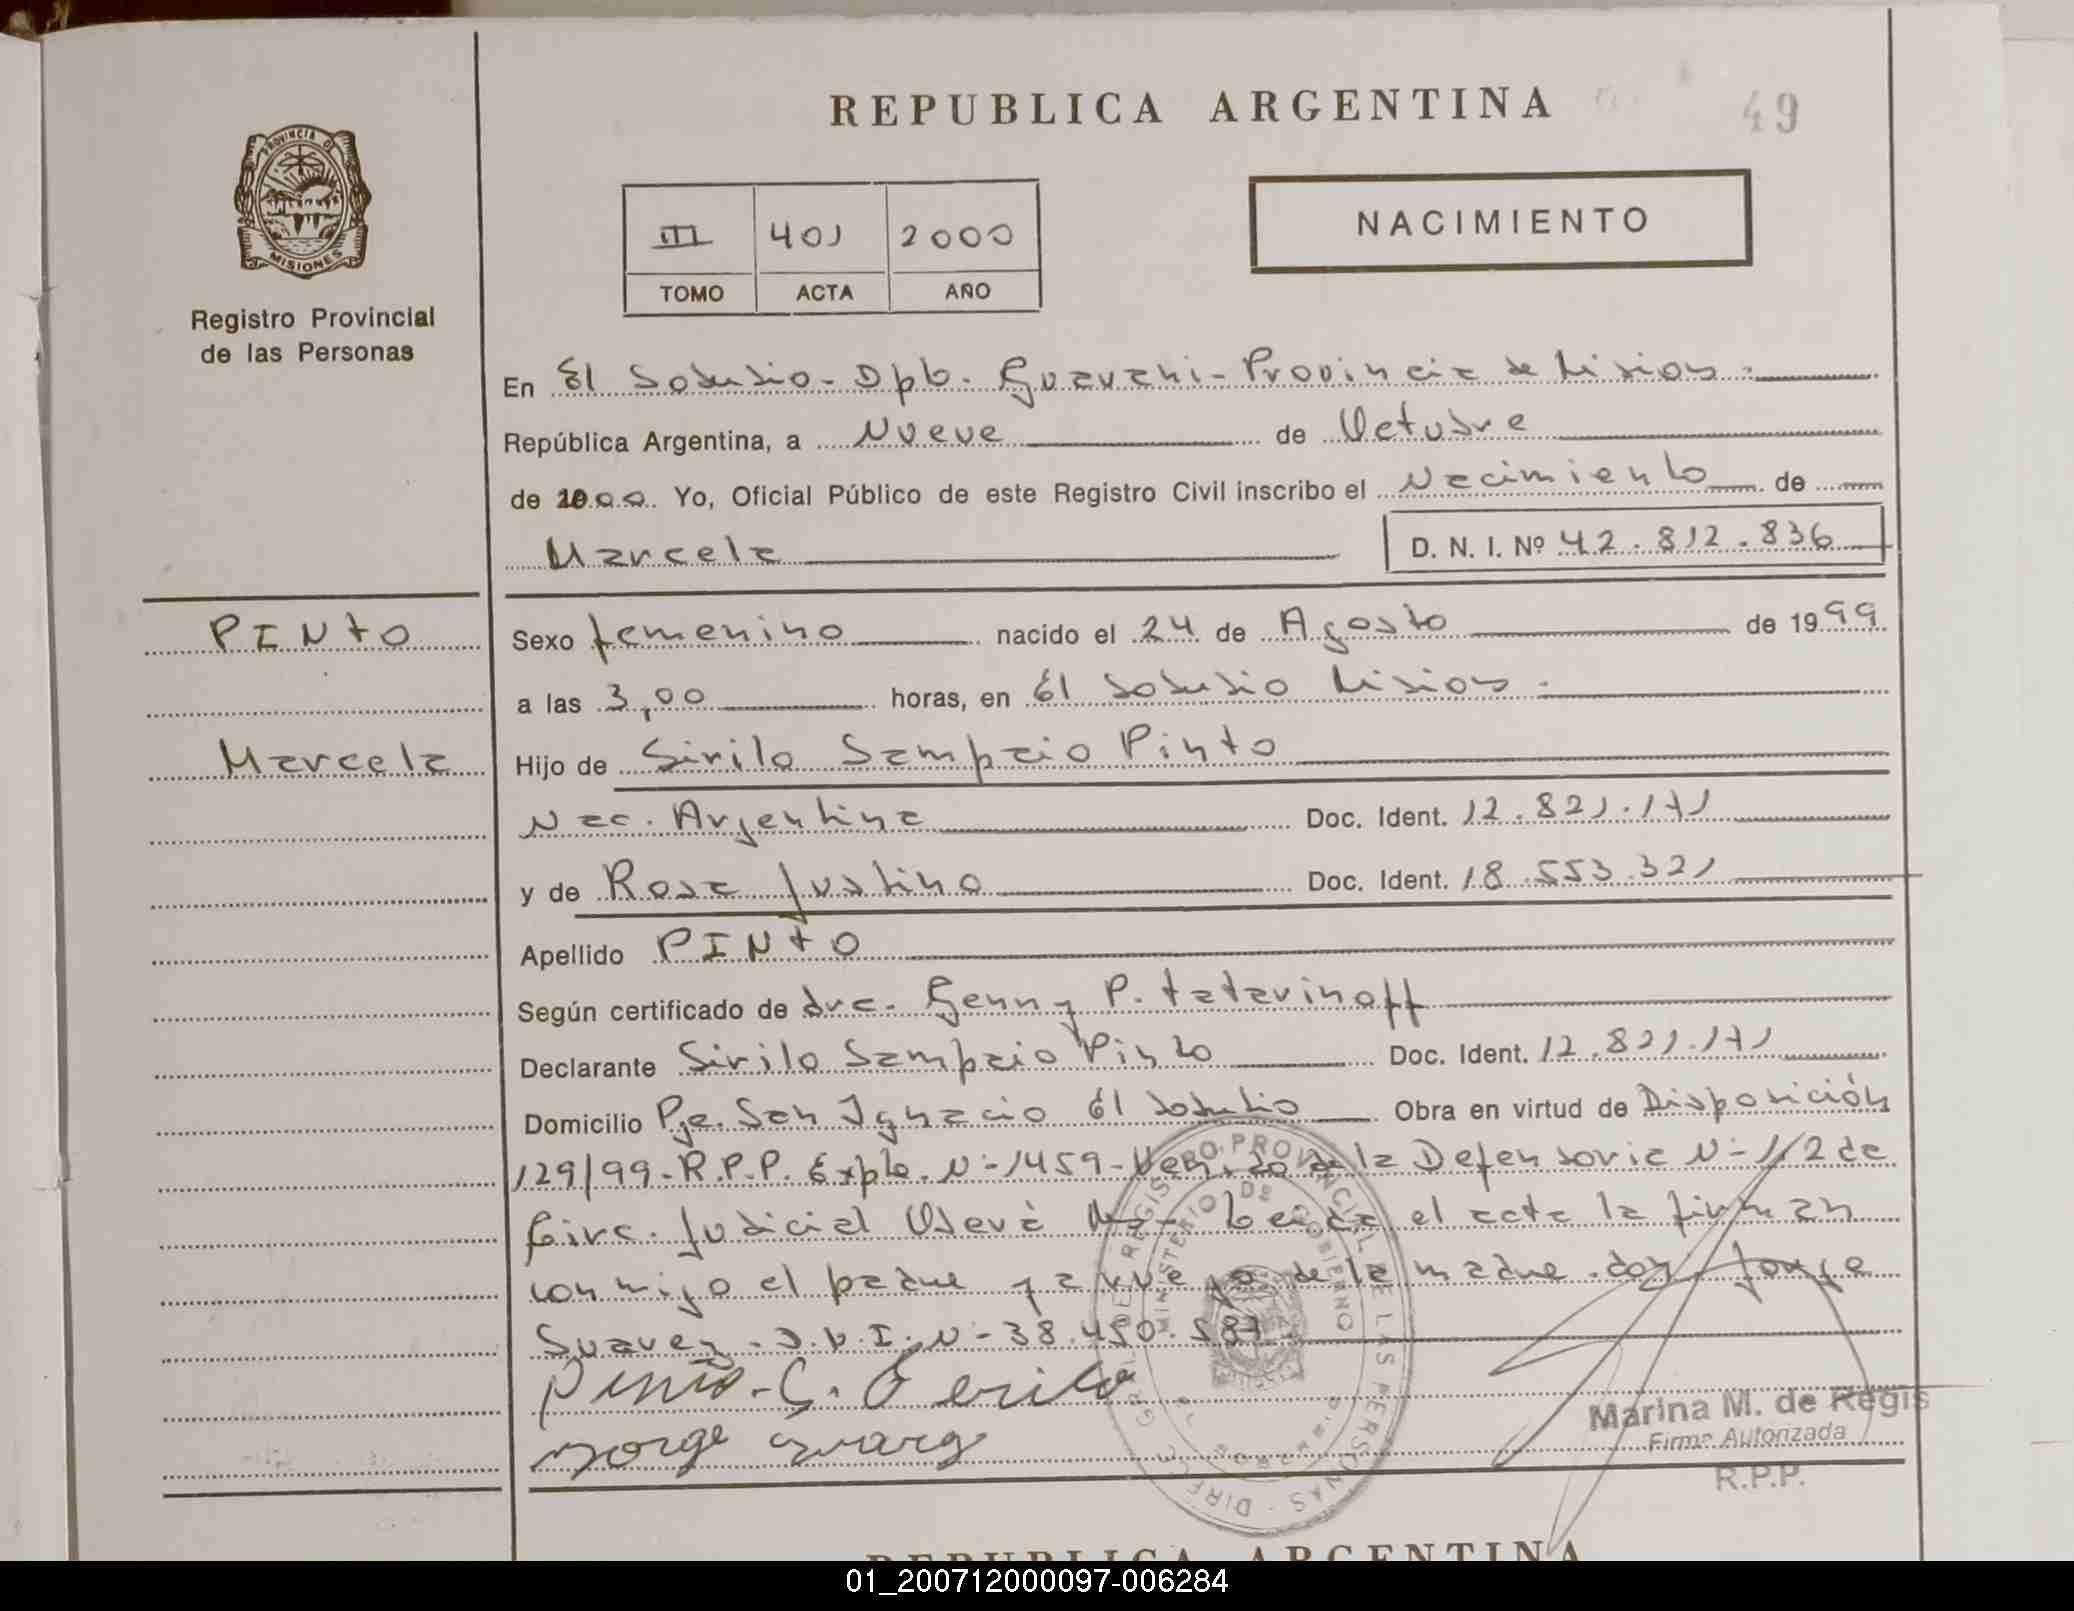 REPUBLICA ARGENTINA
49
PROVINCIA DE
MISIONES
Registro Provincial
de las Personas
III 401 2000
TOMO ACTA AÑO
NACIMIENTO
En El Soberbio - Dpto. Guarani - Provincia de Misiones.
República Argentina, a Nueve de Octubre
de 2000. Yo, Oficial Público de este Registro Civil inscribo el Nacimiento de
Marcela
D. N. I. Nº 42.812.836
PINTO
Marcela
Sexo femenino nacido el 24 de Agosto de 1999
a las 3,00 horas, en El Soberbio Misiones.
Hijo de Sirilo Sampaio Pinto
Nac. Argentina Doc. Ident. 12.821.171
y de Rosa Justino Doc. Ident. 18.553.321
Apellido PINTO
Según certificado de dra. Genny P. Tatarinoff
Declarante Sirilo Sampaio Pinto Doc. Ident. 12.821.171
Domicilio Pje. San Ignacio El Soberbio Obra en virtud de Disposición
129/99-R.P.P. Expte. Nº 1459- de la Defensoria Nº 1/2da
Circ. Judicial Oberá Mnes- Leida el acta la firman
conmigo el padre y a ruego de la madre don Jorge
Suarez. D.N.I. Nº 38.450.587.
Marina M. de Regis
Firma Autorizada
R.P.P.
REGISTRO PROVINCIAL DE LAS PERSONAS
MINISTERIO DE GOBIERNO
REPUBLICA ARGENTINA
01_200712000097-006284